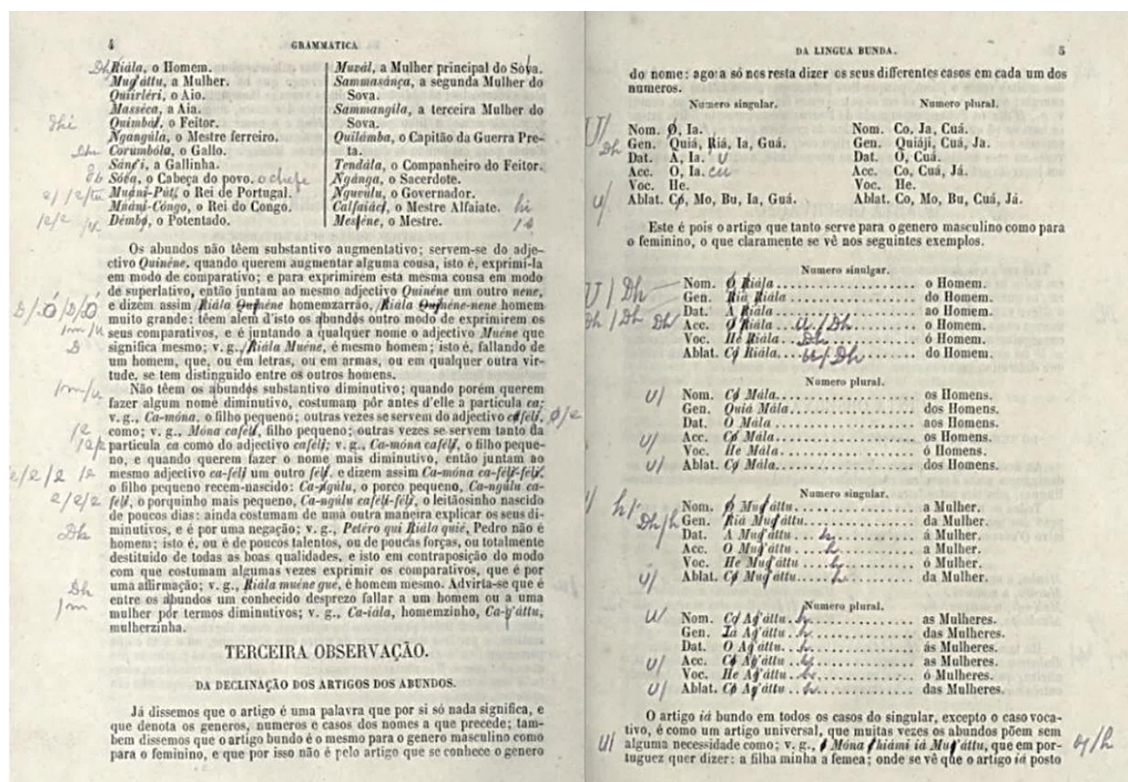 4 GRAMMATICA
Riála, o Homem.
Mug'áttu, a Mulher.
Quiirléri, o Aio.
Masséca, a Aia.
o Feitor.
Ngangúla, o Mestre ferreiro.
Corumbóla, o Gallo.
a Gallinha.
Sóva, o Cabeça do povo. o chefe
o Rei de Portugal.
Muáni-Cóngo, o Rei do Congo.
o Potentado.
Muzál, a Mulher principal do Sova.
Sammasánça, a segunda Mulher do
Sova.
Sammangíla, a terceira Mulher do
Sova.
Quilámba, o Capitão da Guerra Pre-
ta.
Tendála, o Companheiro do Feitor.
Ngánga, o Sacerdote.
Nguvúlu, o Governador.
o Mestre Alfaiate.
o Mestre.
Os abundos não têem substantivo augmentativo; servem-se do adje-
ctivo Quinéne, quando querem augmentar alguma cousa, isto é, exprimi-la
em modo de comparativo; e para exprimirem esta mesma cousa em modo
de superlativo, então juntam ao mesmo adjectivo Quinéne um outro nene,
e dizem assim Riála homemzarrão, Riála homem
muito grande: têem alem d'isto os abundos outro modo de exprimirem os
seus comparativos, e é juntando a qualquer nome o adjectivo Muéne que
significa mesmo; v. g., Riála Muéne, é mesmo homem; isto é, fallando de
um homem, que, ou em letras, ou em armas, ou em qualquer outra vir-
tude, se tem distinguido entre os outros homens.
Não têem os abundos substantivo diminutivo; quando porém querem
fazer algum nome diminutivo, costumam pôr antes d'elle a particula ca;
v. g., Ca-móna, o filho pequeno; outras vezes se servem do adjectivo cafélí,
como; v. g., Móna cafélí, filho pequeno; outras vezes se servem tanto da
particula ca como do adjectivo cafélí; v. g., Ca-móna cafélí, o filho peque-
no, e quando querem fazer o nome mais diminutivo, então juntam ao
mesmo adjectivo ca-félí um outro félí, e dizem assim Ca-móna ca-félí-félí,
o filho pequeno recem-nascido: Ca-ngúlu, o porco pequeno, Ca-ngúlu ca-
félí, o porquinho mais pequeno, Ca-ngúlu cafélí-félí, o leitãosinho nascido
de poucos dias: ainda costumam de uma outra maneira explicar os seus di-
minutivos, e é por uma negação; v. g., Petéro qui Riála quié, Pedro não é
homem; isto é, ou é de poucos talentos, ou de poucas forças, ou totalmente
destituido de todas as boas qualidades, e isto em contraposição do modo
com que costumam algumas vezes exprimir os comparativos, que é por
uma affirmação; v. g., Riála muéne gué, é homem mesmo. Advirta-se que é
entre os abundos um conhecido desprezo fallar a um homem ou a uma
mulher pór termos diminutivos; v. g., Ca-iála, homemzinho,
mulherzinha.
TERCEIRA OBSERVAÇÃO.
DA DECLINAÇÃO DOS ARTIGOS DOS ABUNDOS.
Já dissemos que o artigo é uma palavra que por si só nada significa, e
que denota os generos, numeros e casos dos nomes a que precede; tam-
bem dissemos que o artigo bundo é o mesmo para o genero masculino como
para o feminino, e que por isso não é pelo artigo que se conhece o genero
DA LINGUA BUNDA. 5
do nome: agora só nos resta dizer os seus differentes casos em cada um dos
numeros.
Numero singular.
Nom. O, Ia.
Gen. Quiá, Riá, Ia, Guá.
Dat. A, Ia. U
Acc. O, Ia. cu
Voc. He.
Ablat. Co, Mo, Bu, Ia, Guá.
Numero plural.
Nom. Co, Ja, Cuá.
Gen. Quiáji, Cuá, Ja.
Dat. O, Cuá.
Acc. Co, Cuá, Já.
Voc. He.
Ablat. Co, Mo, Bu, Cuá, Já.
Este é pois o artigo que tanto serve para o genero masculino como para
o feminino, o que claramente se vê nos seguintes exemplos.
Numero sinulgar.
Nom. O Riála . . . . . o Homem.
Gen. Riá Riála . . . . . do Homem.
Dat. A Riála . . . . . ao Homem.
Acc. O Riála . . . . . o Homem.
Voc. He Riála . . . . . ó Homem.
Ablat. Co Riála . . . . . do Homem.
Numero plural.
Nom. Co Mála . . . . . os Homens.
Gen. Quiá Mála . . . . . dos Homens.
Dat. O Mála . . . . . aos Homens.
Acc. Co Mála . . . . . os Homens.
Voc. He Mála . . . . . ó Homens.
Ablat. Co Mála . . . . . dos Homens.
Numero singular.
Nom. O Mug'áttu . . . . . a Mulher.
Gen. Riá Mug'áttu . . . . . da Mulher.
Dat. A Mug'áttu . . . . . á Mulher.
Acc. O Mug'áttu . . . . . a Mulher.
Voc. He Mug'áttu . . . . . ó Mulher.
Ablat. Co Mug'áttu . . . . . da Mulher.
Numero plural.
Nom. Co Ag'áttu . . . . . as Mulheres.
Gen. Iá Ag'áttu . . . . . das Mulheres.
Dat. O Ag'áttu . . . . . ás Mulheres.
Acc. Co Ag'áttu . . . . . as Mulheres.
Voc. He Ag'áttu . . . . . ó Mulheres.
Ablat. Co Ag'áttu . . . . . das Mulheres.
O artigo iá bundo em todos os casos do singular, excepto o caso voca-
tivo, é como um artigo universal, que muitas vezes os abundos põem sem
alguma necessidade como; v. g., Móna iá Mug'áttu, que em por-
tuguez quer dizer: a filha minha a femea; onde se vê que o artigo iá posto